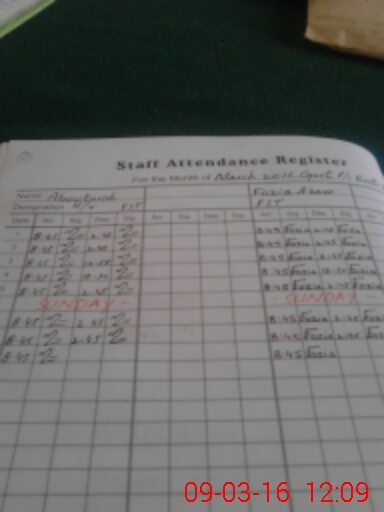 Staff Attendance Register
For the Month of March 2016 Govt P/s
Name Fozia Azam
Designation PST PST
Date Arr Sig Dep Sig Arr Sig Dep Sig Arr Sig Dep Sig
1 8.45 2.45 8.45 Fozia 2.45 Fozia
2 8.45 2.45 8.45 Fozia 2.45 Fozia
3 8.45 8.45 Fozia Fozia
4 8.45 12.30 8.45 Fozia 12.30 Fozia
8.45 2.45 8.45 Fozia 2.45 Fozia
SUNDAY SUNDAY
8.45 2.45 8.45 Fozia 2.45 Fozia
8.45 2.45 8.45 Fozia 2.45 Fozia
8.45 8.45 Fozia
09-03-16 12:09